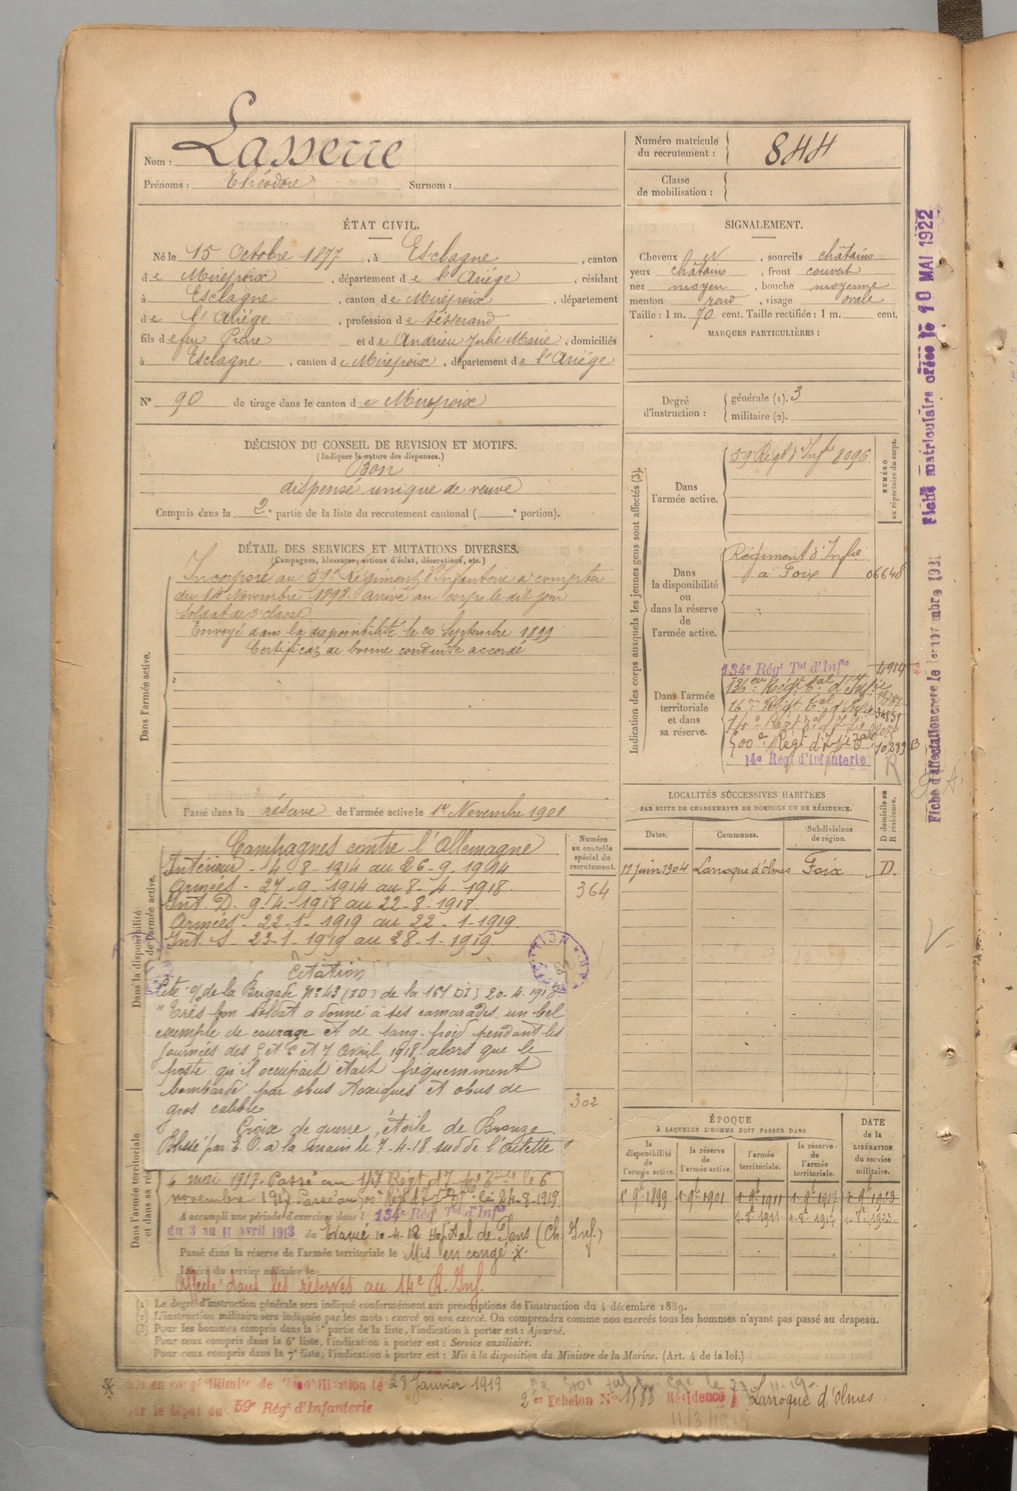 Nom : Lasserre
Prénoms : Théodore Surnom :
Numéro matricule
du recrutement : 844
Classe
de mobilisation :
ÉTAT CIVIL.
Né le 15 Octobre 1877, à Esclagne, canton
de Mirepoix, département de l'Ariège, résidant
à Esclagne, canton de Mirepoix, département
de l'Ariège, profession de tisserand
fils de feu Pierre et de Andrieu Julie Marie, domiciliés
à Esclagne, canton de Mirepoix, département de l'Ariège
N° 90 de tirage dans le canton de Mirepoix
SIGNALEMENT.
Cheveux et, sourcils châtains
yeux châtains, front couvert
nez moyen, bouche moyenne
menton rond, visage ovale
Taille : 1 m. 70 cent. Taille rectifiée : 1 m. cent.
MARQUES PARTICULIÈRES :
Degré
d'instruction :
générale (1). 3
militaire (2).
DÉCISION DU CONSEIL DE REVISION ET MOTIFS.
(Indiquer la nature des dispenses.)
Bon
dispensé unique de veuve
Compris dans la 2e partie de la liste du recrutement cantonal ( e portion).
DÉTAIL DES SERVICES ET MUTATIONS DIVERSES.
(Campagnes, blessures, actions d'éclat, décorations, etc.)
Dans l'armée active.
Incorporé au 59e Régiment d'Infanterie à compter
du 14 Novembre 1898. Arrivé au corps le dit jour
Soldat de 2e classe
Envoyé dans la disponibilité le 20 Septembre 1899
Certificat de bonne conduite accordé
Passé dans la réserve de l'armée active le 1er Novembre 1901
Indication des corps auxquels les jeunes gens sont affectés (3).
NUMÉRO
au répertoire du corps.
Dans
l'armée active.
59 Régt d'Infie 8096
Dans
la disponibilité
ou
dans la réserve
de
l'armée active.
Régiment d'Infie
à Foix 06648
Dans l'armée
territoriale
et dans
sa réserve.
134e Régt Tal d'Infie 4914
134eme Régt Tal d'Infie
16me Régt Tal d'Infie 34851
14e Régt Tal d'Infie
500e Régt d'I Tale 10,283
14e Reg. d'Infanterie
LOCALITÉS SUCCESSIVES HABITÉES
PAR SUITE DE CHANGEMENTS DE DOMICILE OU DE RÉSIDENCE.
D domicile ou
R résidence.
Dates. Communes. Subdivisions
de région.
17 juin 1904 Laroque d'olmes Foix D.
Dans la disponibilité
de l'armée active.
Campagnes contre l'Allemagne
Intérieur - 4-8-1914 au 26-9-1914
Armées - 27-9-1914 au 8-4-1918
Int D. 9-4-1918 au 22-8-1918
Armées - 22-1-1919 au 22-1-1919
Int S. 23-1-1919 au 28-1-1919
Numéro
au contrôle
spécial du
recrutement.
364
Citation
Cité O/ de la Brigade N° 43 (ID) de la 151 DI) 20-4-1918
"Très bon soldat a donné à ses camarades un bel
exemple de courage et de sang-froid pendant les
journées des 5 et 6 et 7 Avril 1918 alors que le
poste qu'il occupait était fréquemment
bombardé par obus toxiques et obus de
gros calibre
Croix de guerre, étoile de Bronze
Blessé par E.O. à la main le 7-4-18 sud de l'Ailette
302
Dans l'armée territoriale
et dans sa réserve.
novembre
A accompli une période d'exercices dans l 134e Rég Tal d'Infie
du 3 au 11 Avril 1913 Evacué 10-4-18 Hôpital de Pons (Ch. Inf.)
Passé dans la réserve de l'armée territoriale le Mis en congé
Libéré du service militaire le
Affecté dans les réserves au 14e R. Inf.
ÉPOQUE
À LAQUELLE L'HOMME DOIT PASSER DANS
DATE
de la
LIBÉRATION
du service
militaire.
la
disponibilité
de
l'armée active.
la
réserve de
l'armée active.
l'armée
territoriale.
la réserve
de
l'armée
territoriale.
1er 9bre 1899 1er 9bre 1901 1er 9bre 1911 1er 9bre 1917 1er 9bre 1923
(1) Le degré d'instruction générale sera indiqué conformément aux prescriptions de l'instruction du 4 décembre 1889.
(2) L'instruction militaire sera indiquée par les mots : exercé ou non exercé. On comprendra comme non exercés tous les hommes n'ayant pas passé au drapeau.
(3) Pour les hommes compris dans la 5e partie de la liste, l'indication à porter est : Ajourné.
Pour ceux compris dans la 6e liste, l'indication à porter est : Service auxiliaire.
Pour ceux compris dans la 7e liste, l'indication à porter est : Mis à la disposition du Ministre de la Marine. (Art. 4 de la loi.)
Mis en congé illimité de démobilisation le 28 Janvier 1919
par le dépôt du 59e Rég d'Infanterie
2e Echelon N° 1588 Résidence Laroque d'olmes
Fiche matriculaire créée le 10 MAI 1922